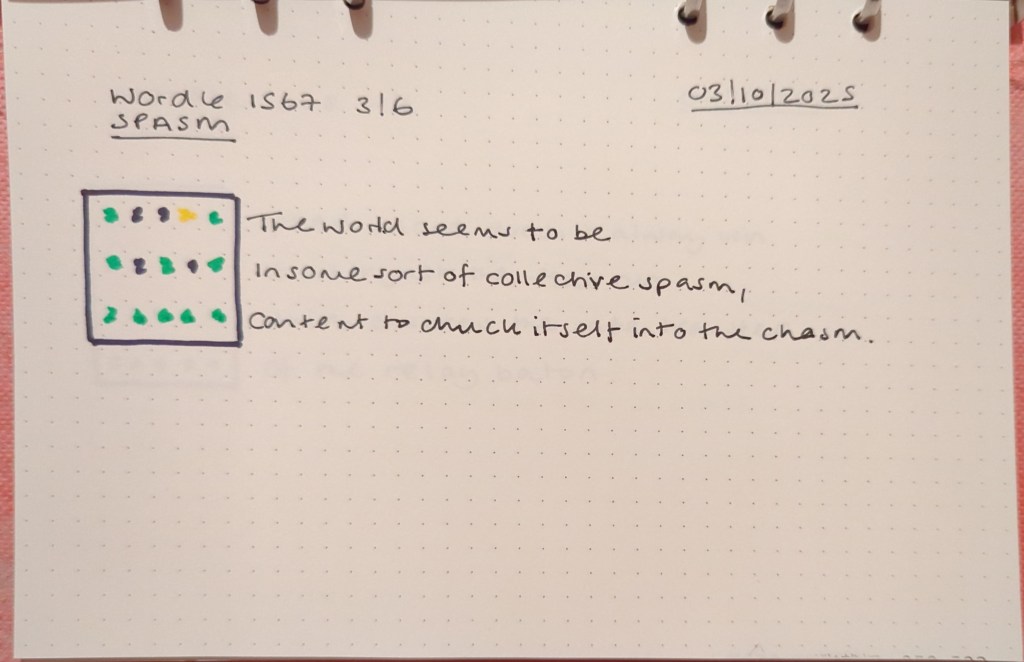 Wordle 1567 3/6
03/10/2025
SPASM
The world seems to be
In some sort of collective spasm,
Content to chuck itself into the chasm.